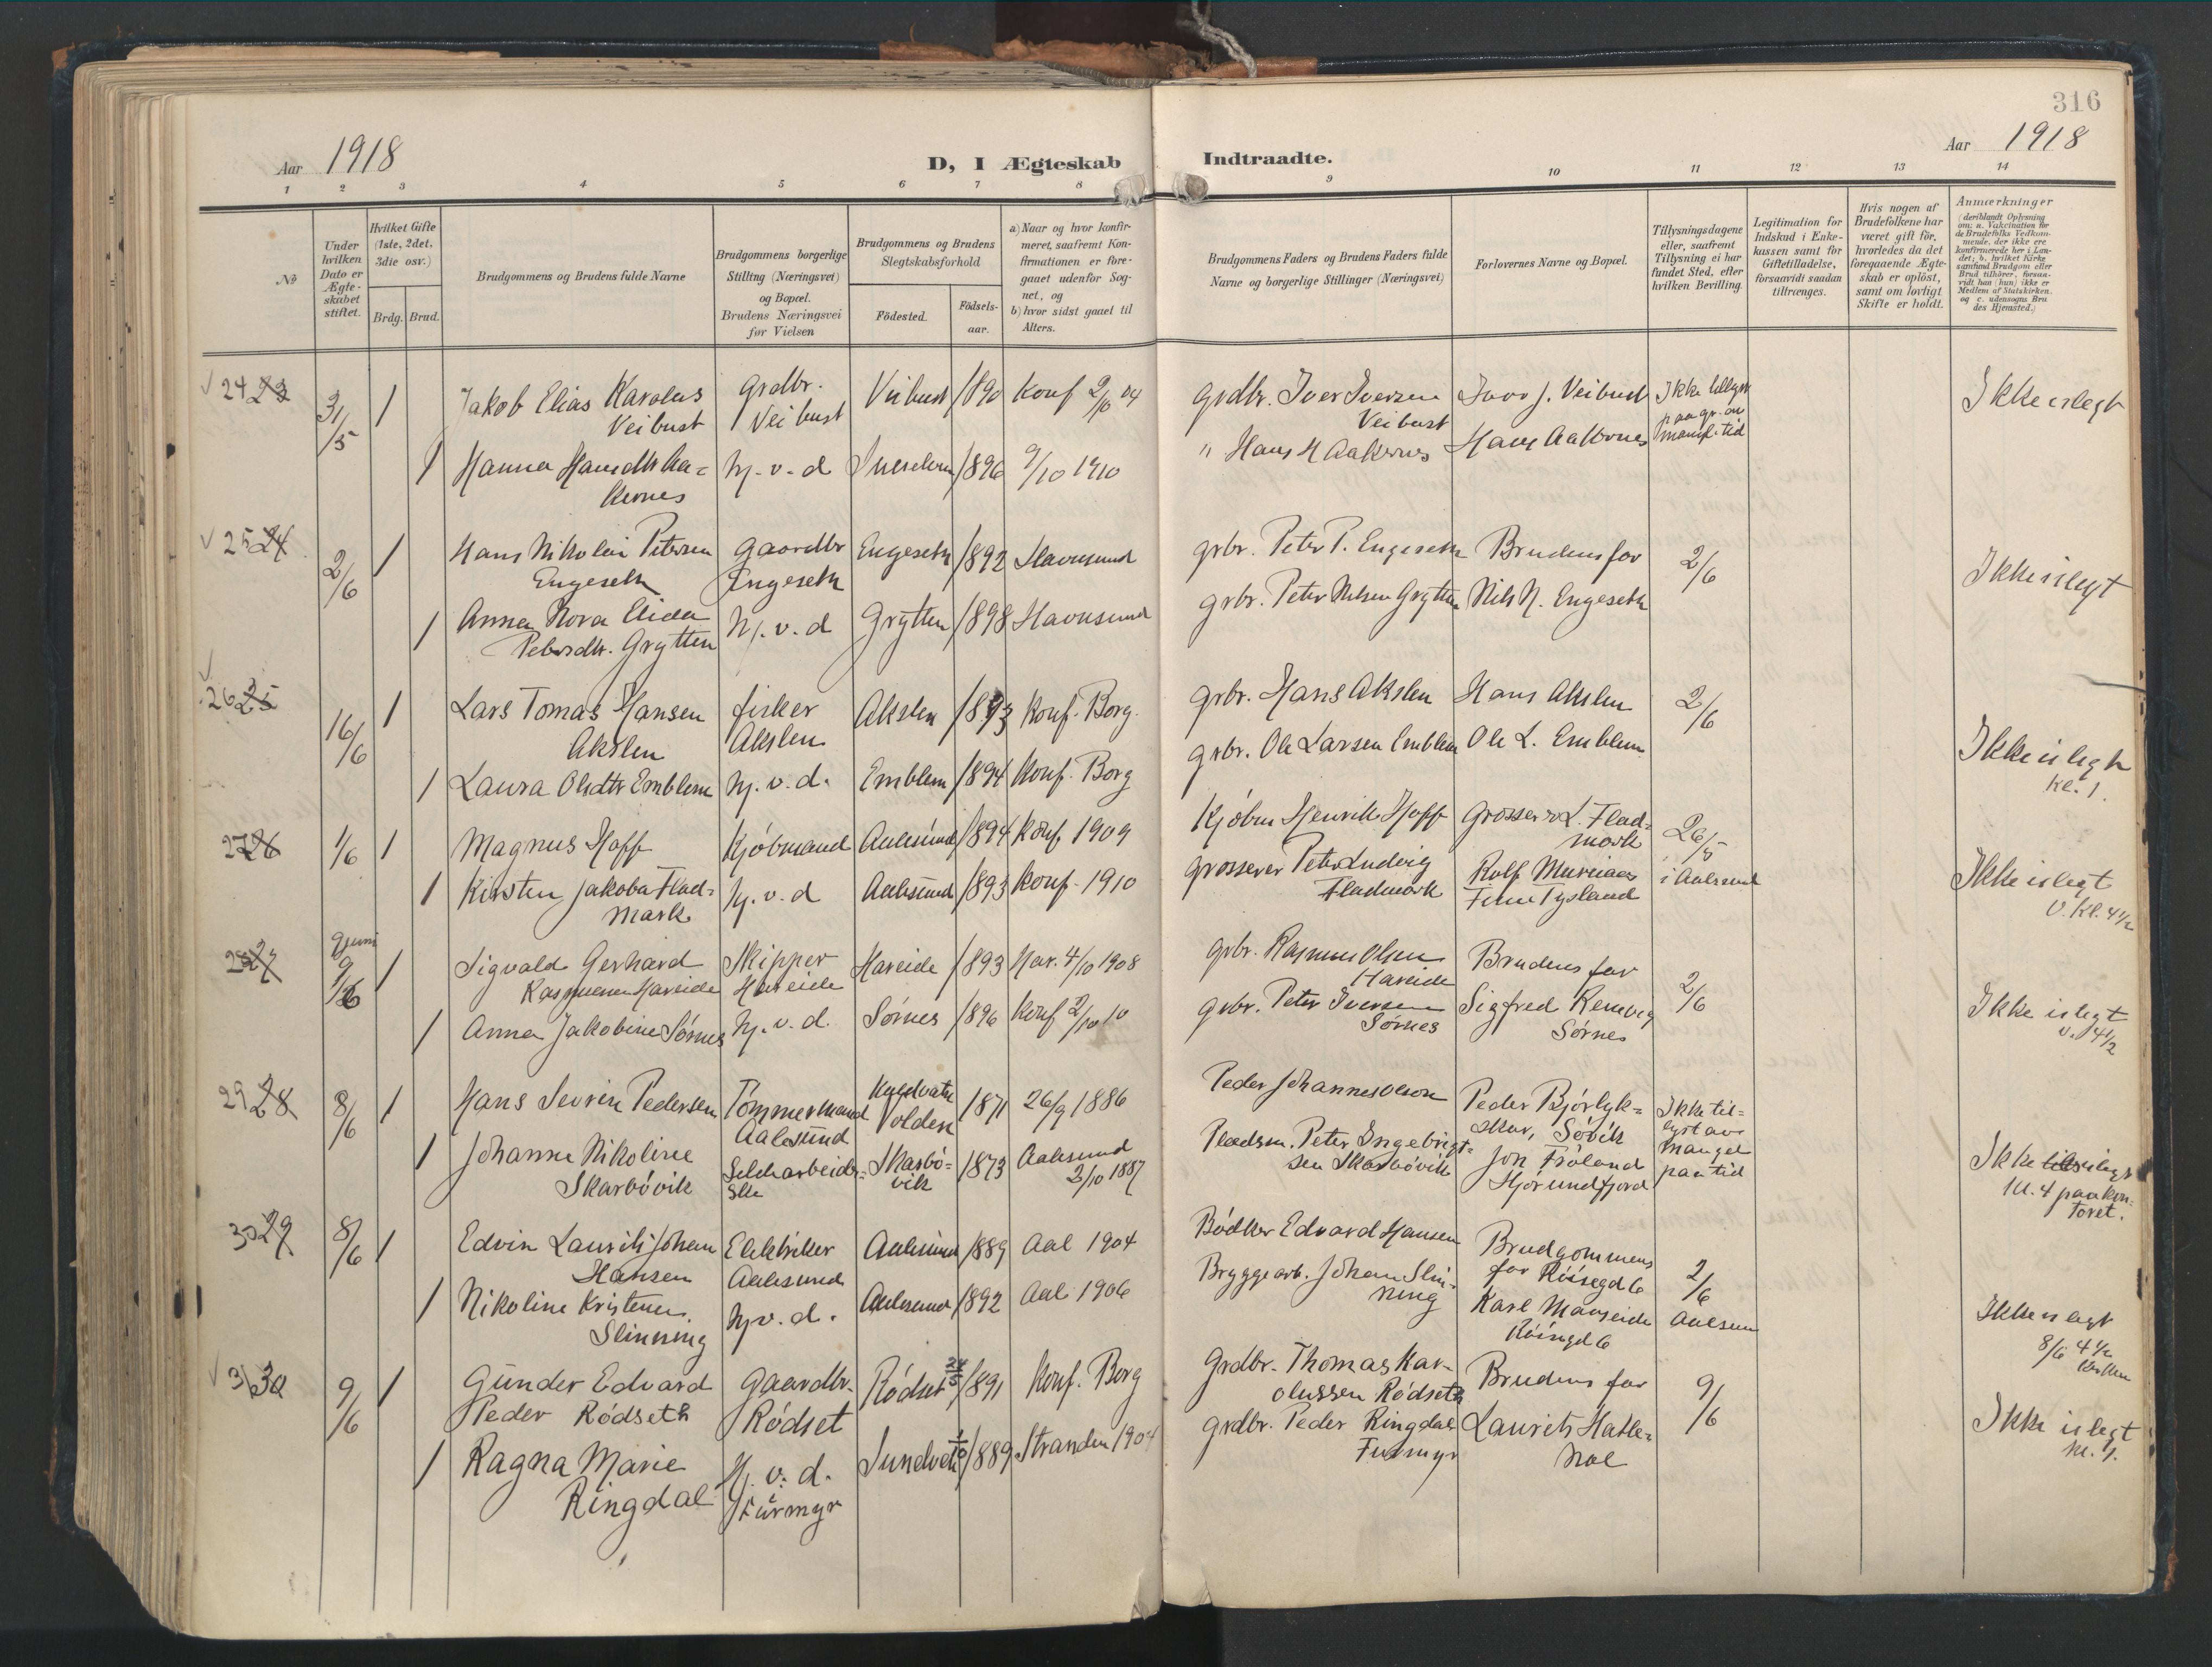 316
Aar 1918
D, I Ægteskab Indtraadte.
Aar 1918
1 2 3 4 5 6 7 8 9 10 11 12 13 14
No
Under hvilken Dato er Ægteskabet stiftet.
Hvilket Gifte (1ste, 2det, 3die osv.)
Brdg. Brud.
Brudgommens og Brudens fulde Navne
Brudgommens borgerlige Stilling (Næringsvei) og Bopæl. Brudens Næringsvei før Vielsen
Brudgommens og Brudens Slegtskabsforhold
Födested. Födselsaar.
a) Naar og hvor konfirmeret, saafremt Konfirmationen er foregaaet udenfor Sognet, og
b) hvor sidst gaaet til Alters.
Brudgommens Faders og Brudens Faders fulde Navne og borgerlige Stillinger (Næringsvei)
Forlovernes Navne og Bopæl.
Tillysningsdagene eller, saafremt Tillysning ei har fundet Sted, efter hvilken Bevilling.
Legitimation for Indskud i Enkekassen samt for Giftetilladelse, forsaavidt saadan tiltrænges.
Hvis nogen af Brudefolkene har været gift för, hvorledes da det foregaaende Ægteskab er oplöst, samt om lovligt Skifte er holdt.
Anmærkninger
24 23 31/5 1 Jakob Elias Karolus Veibust Grdbr. Veibust Veibust 1890 Konf 2/10 04 Grdbr. Iver Iversen Veibust Iver J. Veibust Ikke tillyst paa gr. av mangl. tid Ikke i slegt
1 Hanna Hansdtr Aakernes hj. v. d 1896 9/10 1910 " Hans H Aakernes Hans Aakernes
25 24 2/6 1 Hans Nikolai Petersen Engeseth Gaardbr Engeseth Engeseth 1892 Havnsund grbr. Peter P. Engeseth Brudens far 2/6 Ikke i slegt
1 Anna Nora Elida Petersdtr. Grytten hj. v. d Grytten 1898 Havnsund grbr. Peter Nilsen Grytten Nils N. Engeseth
26 25 16/6 1 Lars Tomas Hansen Akslen fisker Akslen Akslen 1893 Konf. Borg. grbr. Hans Akslen Hans Akslen 2/6 Ikke i slegt kl. 1.
1 Laura Olsdtr Emblem hj. v. d. Emblem 1894 Konf. Borg grbr. Ole Larsen Emblem Ole L. Emblem
27 26 1/6 1 Magnus Hoff Kjöbmand Aalesund 1894 Konf 1909 Kjöbm Henrik Hoff Grosserer L. Fladmark 26/5 i Aalesund Ikke i slegt v. kl. 4 1/2
1 Kirsten Jakoba Fladmark hj. v. d Aalesund 1893 Konf. 1910 Grosserer Peter Ludvig Fladmark Rolf Tysland
28 27 9 juni 9/6 1 Sigvald Gerhard Rasmussen Hareide Skipper Hareide Hareide 1893 Har. 4/10 1908 grbr. Rasmus Olsen Hareide Brudens far 2/6 Ikke i slegt v. 4 1/2
1 Anna Jakobine Sörnes hj. v. d. Sörnes 1896 Konf 2/10 10 grbr. Peter Iversen Sörnes Sigfred Remvig Sörnes
29 28 8/6 1 Hans Sevrin Pedersen Tömmermand Aalesund Volden 1871 26/9 1886 Peder Johannes Olson Peder Bjórlykskar, Sövik Ikke tillyst av mangel paa tid Ikke i slegt kl. 4 paa kontoret.
1 Johanne Nikoline Skarbövik Skarbövik 1873 Aalesund 2/10 1887 Pladsm. Peter Ingebrigtsen Skarbövik Jon Fröland Hjörundfjord
30 29 8/6 1 Edvin Laurits Johan Hansen Elektriker Aalesund Aalesund 1889 Aal 1904 Bödker Edvard Hansen Brudgommens far Röisegd 6 2/6 Aalesun Ikke i slegt 8/6 4 1/2
1 Nikoline Kristense Slinning hj v. d. Aalesund 1892 Aal 1906 Bryggearb. Johan Slinning Karl Mauseide Röisegd 6
31 30 9/6 1 Gunder Edvard Peder Rödseth Gaardbr. Rödset Rödset 1891 Konf. Borg Grdbr. Thomas Karolussen Rödseth Brudens far 9/6 Ikke i slegt kl. 4.
1 Ragna Marie Ringdal Hj. v. d. Furmyr 1889 Stranden 1904 Grdbr. Peder Ringdal Furmyr Laurits Hatlehol